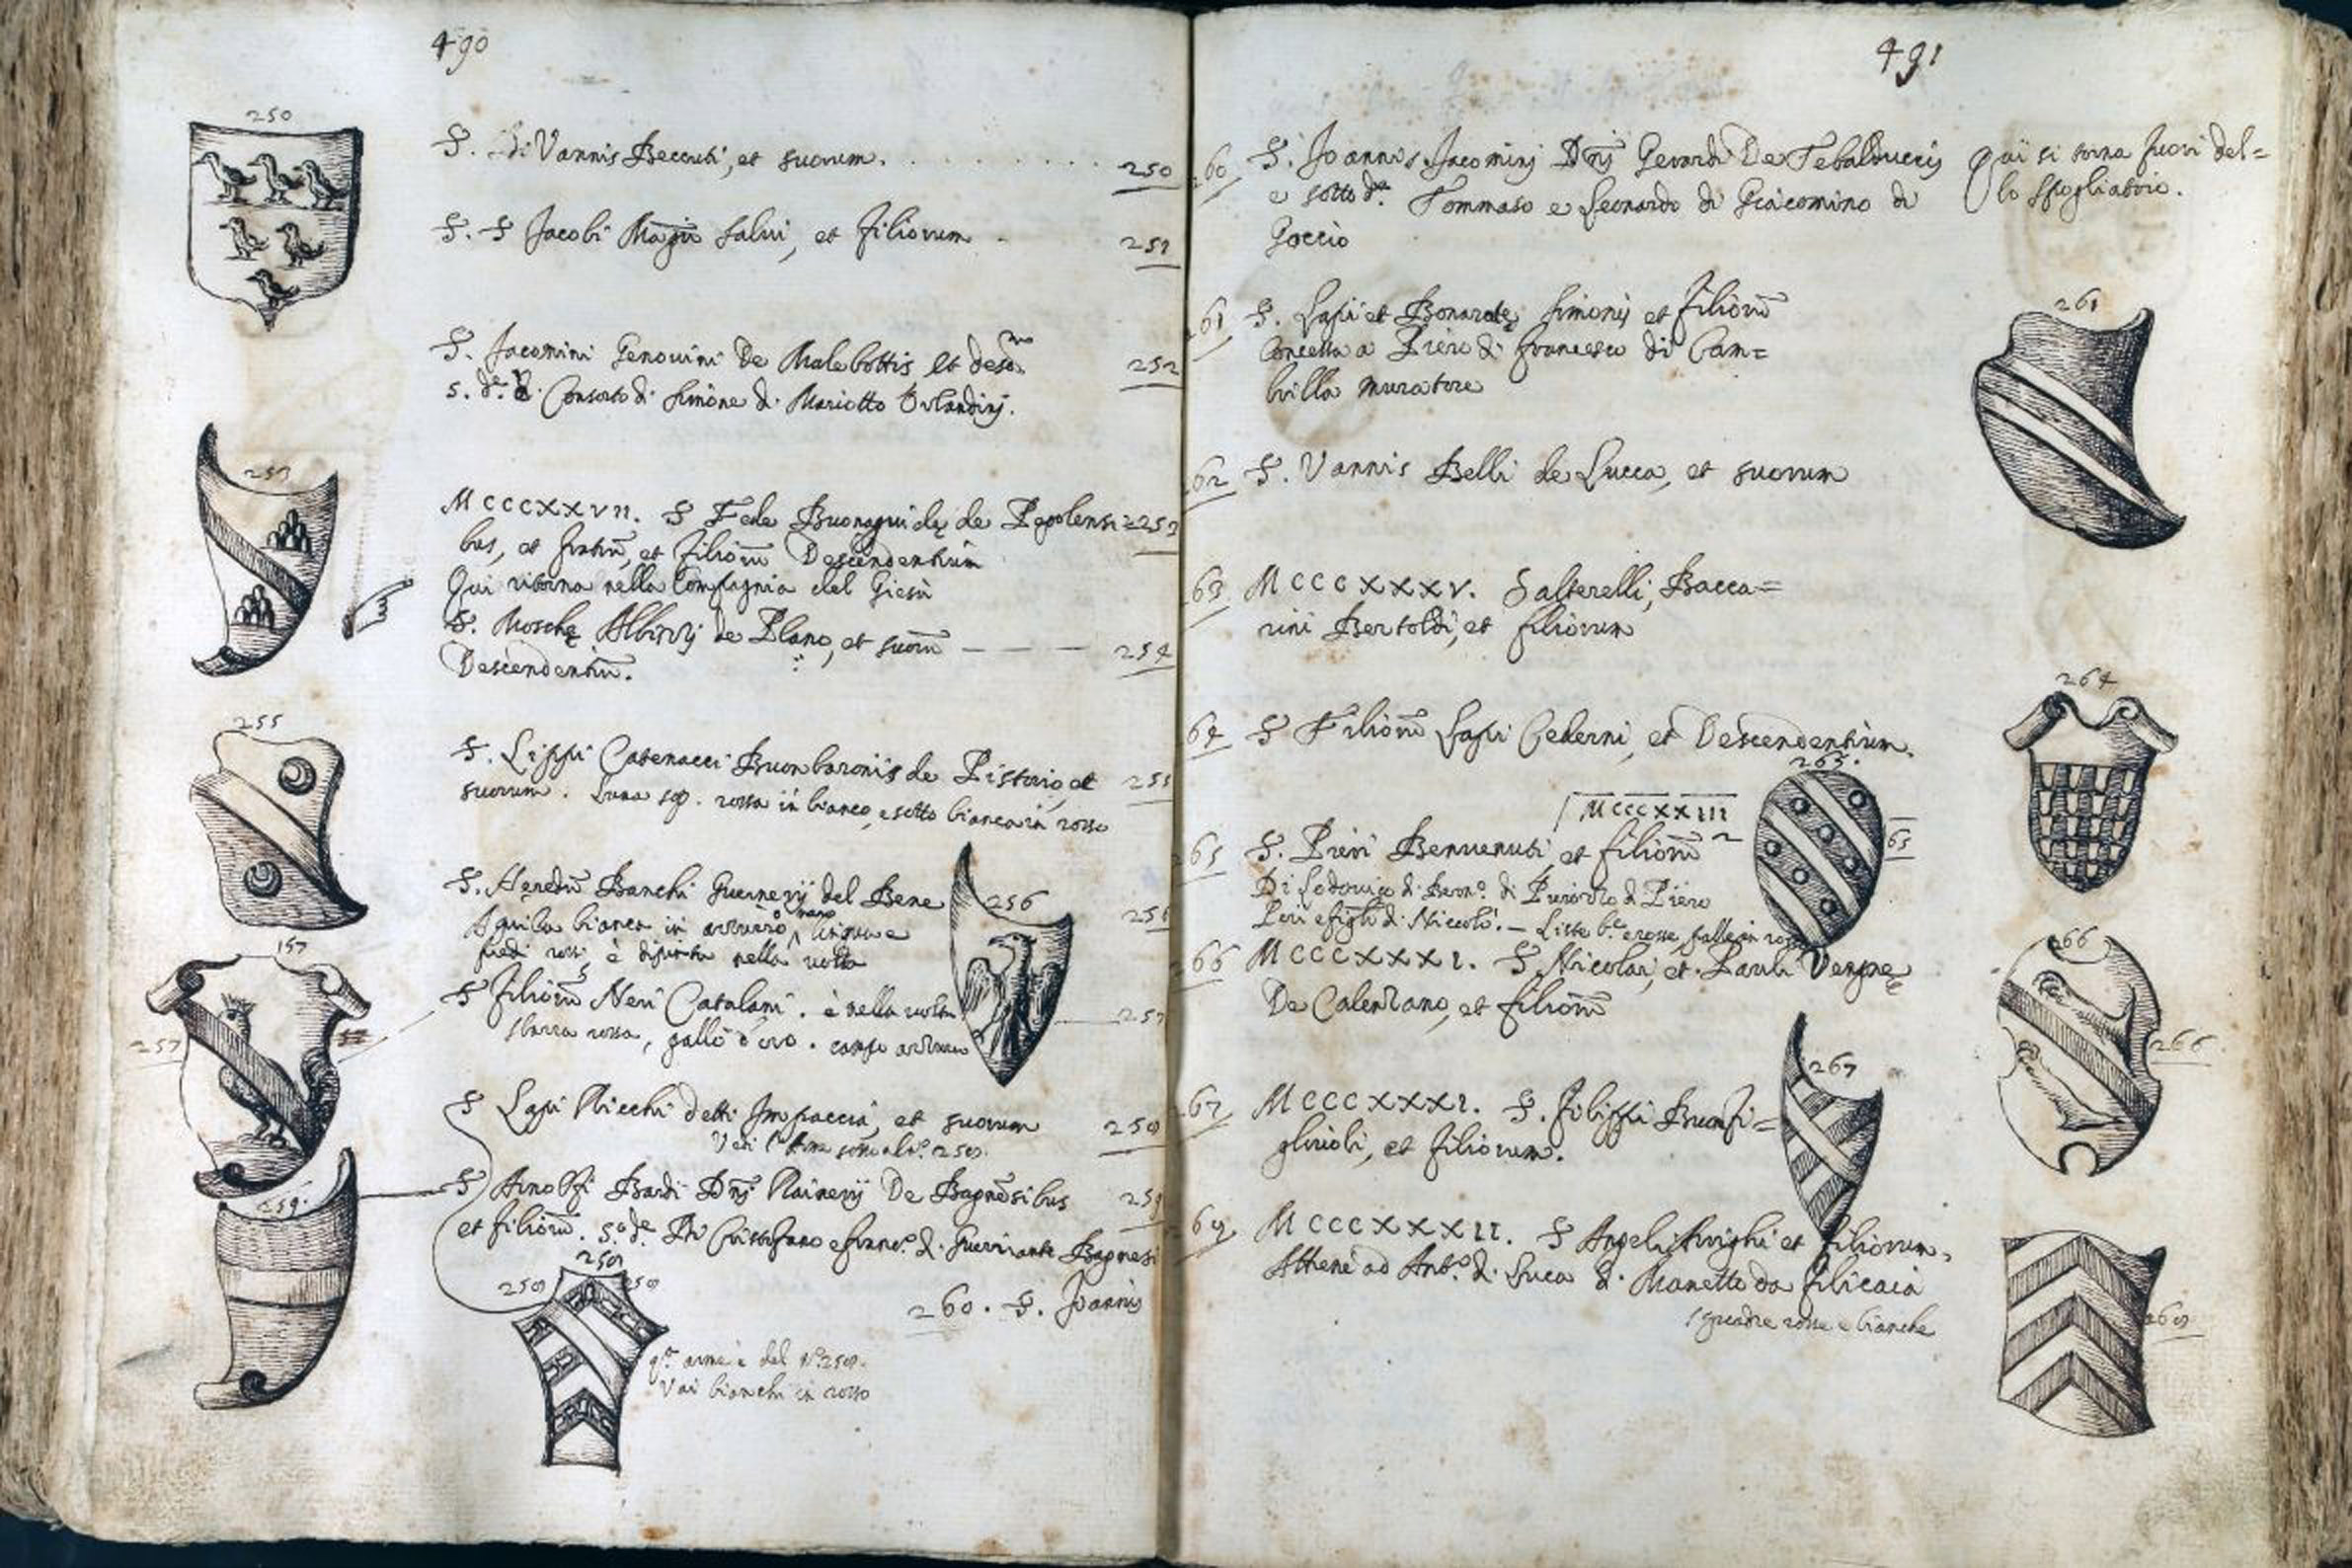 490
250
S. Di Vannis Beccuti, et suorum. 250
S. S Jacobi Magri Salvi, et filiorum 251
S. Jacomini Genovini De Malebottis et 252
Consorto di Simone di Mariotto Orlandinj.
253
MCCCXXVII. S Fede Buonaguidę de Pegolensi= 253
bus, et fratrū, et filiorū Descendentium
Qui ritorna nella Compagnia del Giesù
S. Moschę Albizzj de Plano, et suorū 254
Descendentiū.
255
S. Lippi Catenacci Buonbaronis de Pistorio, et 255
suorum. Luna sop. rossa in bianco, e sotto bianca in rosso
S. Heredū Banchi Guernerij del Bene 256
Aquila bianca in azzurro, lingua e
piedi rossi è dipinta nella volta
256
157
257
S filiorū Neri Catalani. è nella volta 257
sbarra rossa, gallo d'oro. campo azzurro
S Lapi Ricchi detti Impaccia, et suorum 258
Vedi l'Arme sotto al nº. 258.
259.
S Arnolfi Bardi Dnj Rainerij De Bagnesibus 259
et filiorū. Di Cristofano e franc.º di Guerriante Bagnesi
258
258 258
260. S. Joannis
q.ª arme è del Nº 258.
Vai bianchi in rosso
491
60 S. Joannis Jacominj Dnj Gerardi De Tebalduccis
e sotto d.ª Tommaso e Leonardo di Giacomino di
Goccio
Qui si torna fuori del=
lo spogliatoio.
61 S. Lapi et Bonarotę Simonis et filiorū
Concessa a Piero di francesco di Cam=
brilla muratore
261
62 S. Vannis Belli de Lucca, et suorum
63 MCCCXXXV. Salterelli, Bacca=
rini Bertoldi, et filiorum
64 S Filiorū Lapi Cederni, et Descendentium.
264
265.
MCCCXXIII
65 S. Pieri Benvenuti et filiorū 65
Di Lodovico di Bern.º di Pierozzo di Piero
Peri e figli di Niccolò. — Liste b.e e rosse palle in rosso
66 MCCCXXXI. S. Nicolai, et Pauli Vernę
De Calenzano, et filiorū
66
266
67 MCCCXXXI. S. filippi Buonfi=
gliuoli, et filiorum.
267
69 MCCCXXXII. S Angeli Arrighi et filiorum,
Attene ad Ant.º di Luca di Manetto da filicaia
squadre rosse e bianche
269